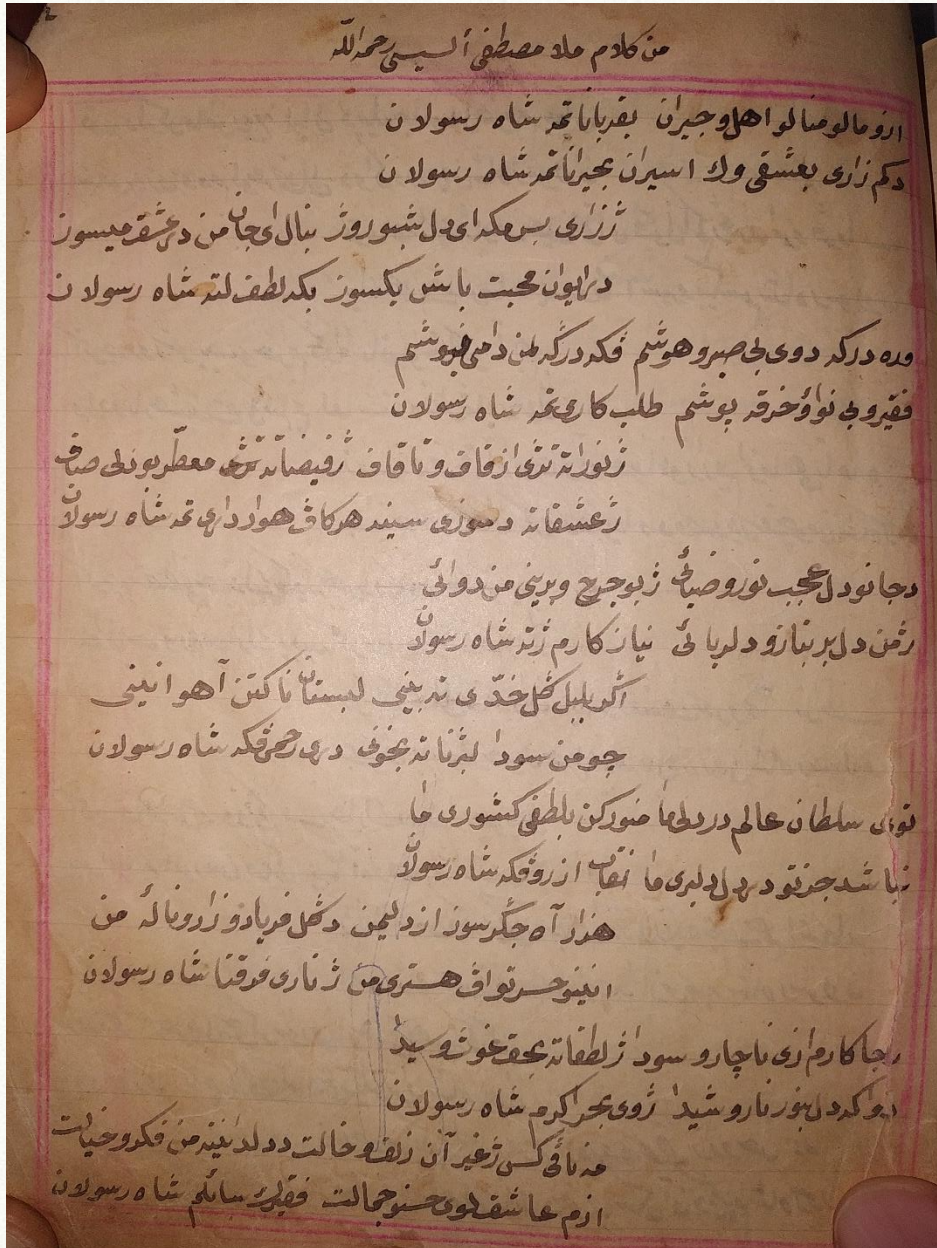 من كلام ملا مصطفى ألسيسي رحمه الله
ازو مالو منالو اهل و جيران بقربانا تمه شاه رسولان
دكم زاری بعشقی وك اسيران بحيرانا تمه شاه رسولان
ژ زاری بس مكه ای دل شبو روژ بنال ای جان من در عشق ميسوز
در ايوان محبت باش يكسوز بكه لطف لته شاه رسولان
وره دركه دوی بی صبر و هوشم ڤكه درگه لمن دامی بنوشم
فقير و بی نواؤ خرقه پوشم طلب كاری تمه شاه رسولان
ژ نورا ته تژی از قاف و تا قاف ژ فيضا ته معطر بون لی صاف
ژ عشقا ته دسوزی سينه هر كاڤ هوادارای تمه شاه رسولان
د جانو دل عجب نور و ضيائی ژ بو جرح و برينی من دوائی
ژ من دل بر بنازو دلربائی نياز كارم ژ ته شاه رسولان
اگر بلبل گل خدّی ته بينی لبستان ناكتن آهو انينی
چو من سودا لبژنا ته بخونی دری رحمی ڤكه شاه رسولان
توی سلطان عالم در دلی ما منور كن بلطفی كشوری ما
نباشد جز تو در دل دلبری ما نقاب از رو ڤكه شاه رسولان
هزار آه جگر سوز از دليمن دگل فرياد و زار و نالهٔ من
انينو حسرتو اڤ هستری من ژ ناری فرقتا شاه رسولان
رجا كارم ازی ناچار و سودا ژ لطفا ته بحق غوث و سيدا
دوا كه دل بنور نار و شيدا ژوی بحرا كرم شاه رسولان
مه نائی كس ژ غير آن زلف و خالت د دلدا نينه من فكر و خيالت
ازم عاشق لوی حسنو جمالت فقيرك سائلم شاه رسولان